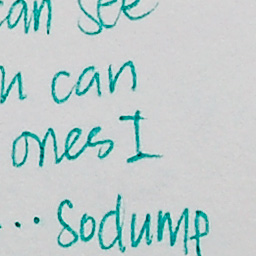 can see
can
ones I
... sodump